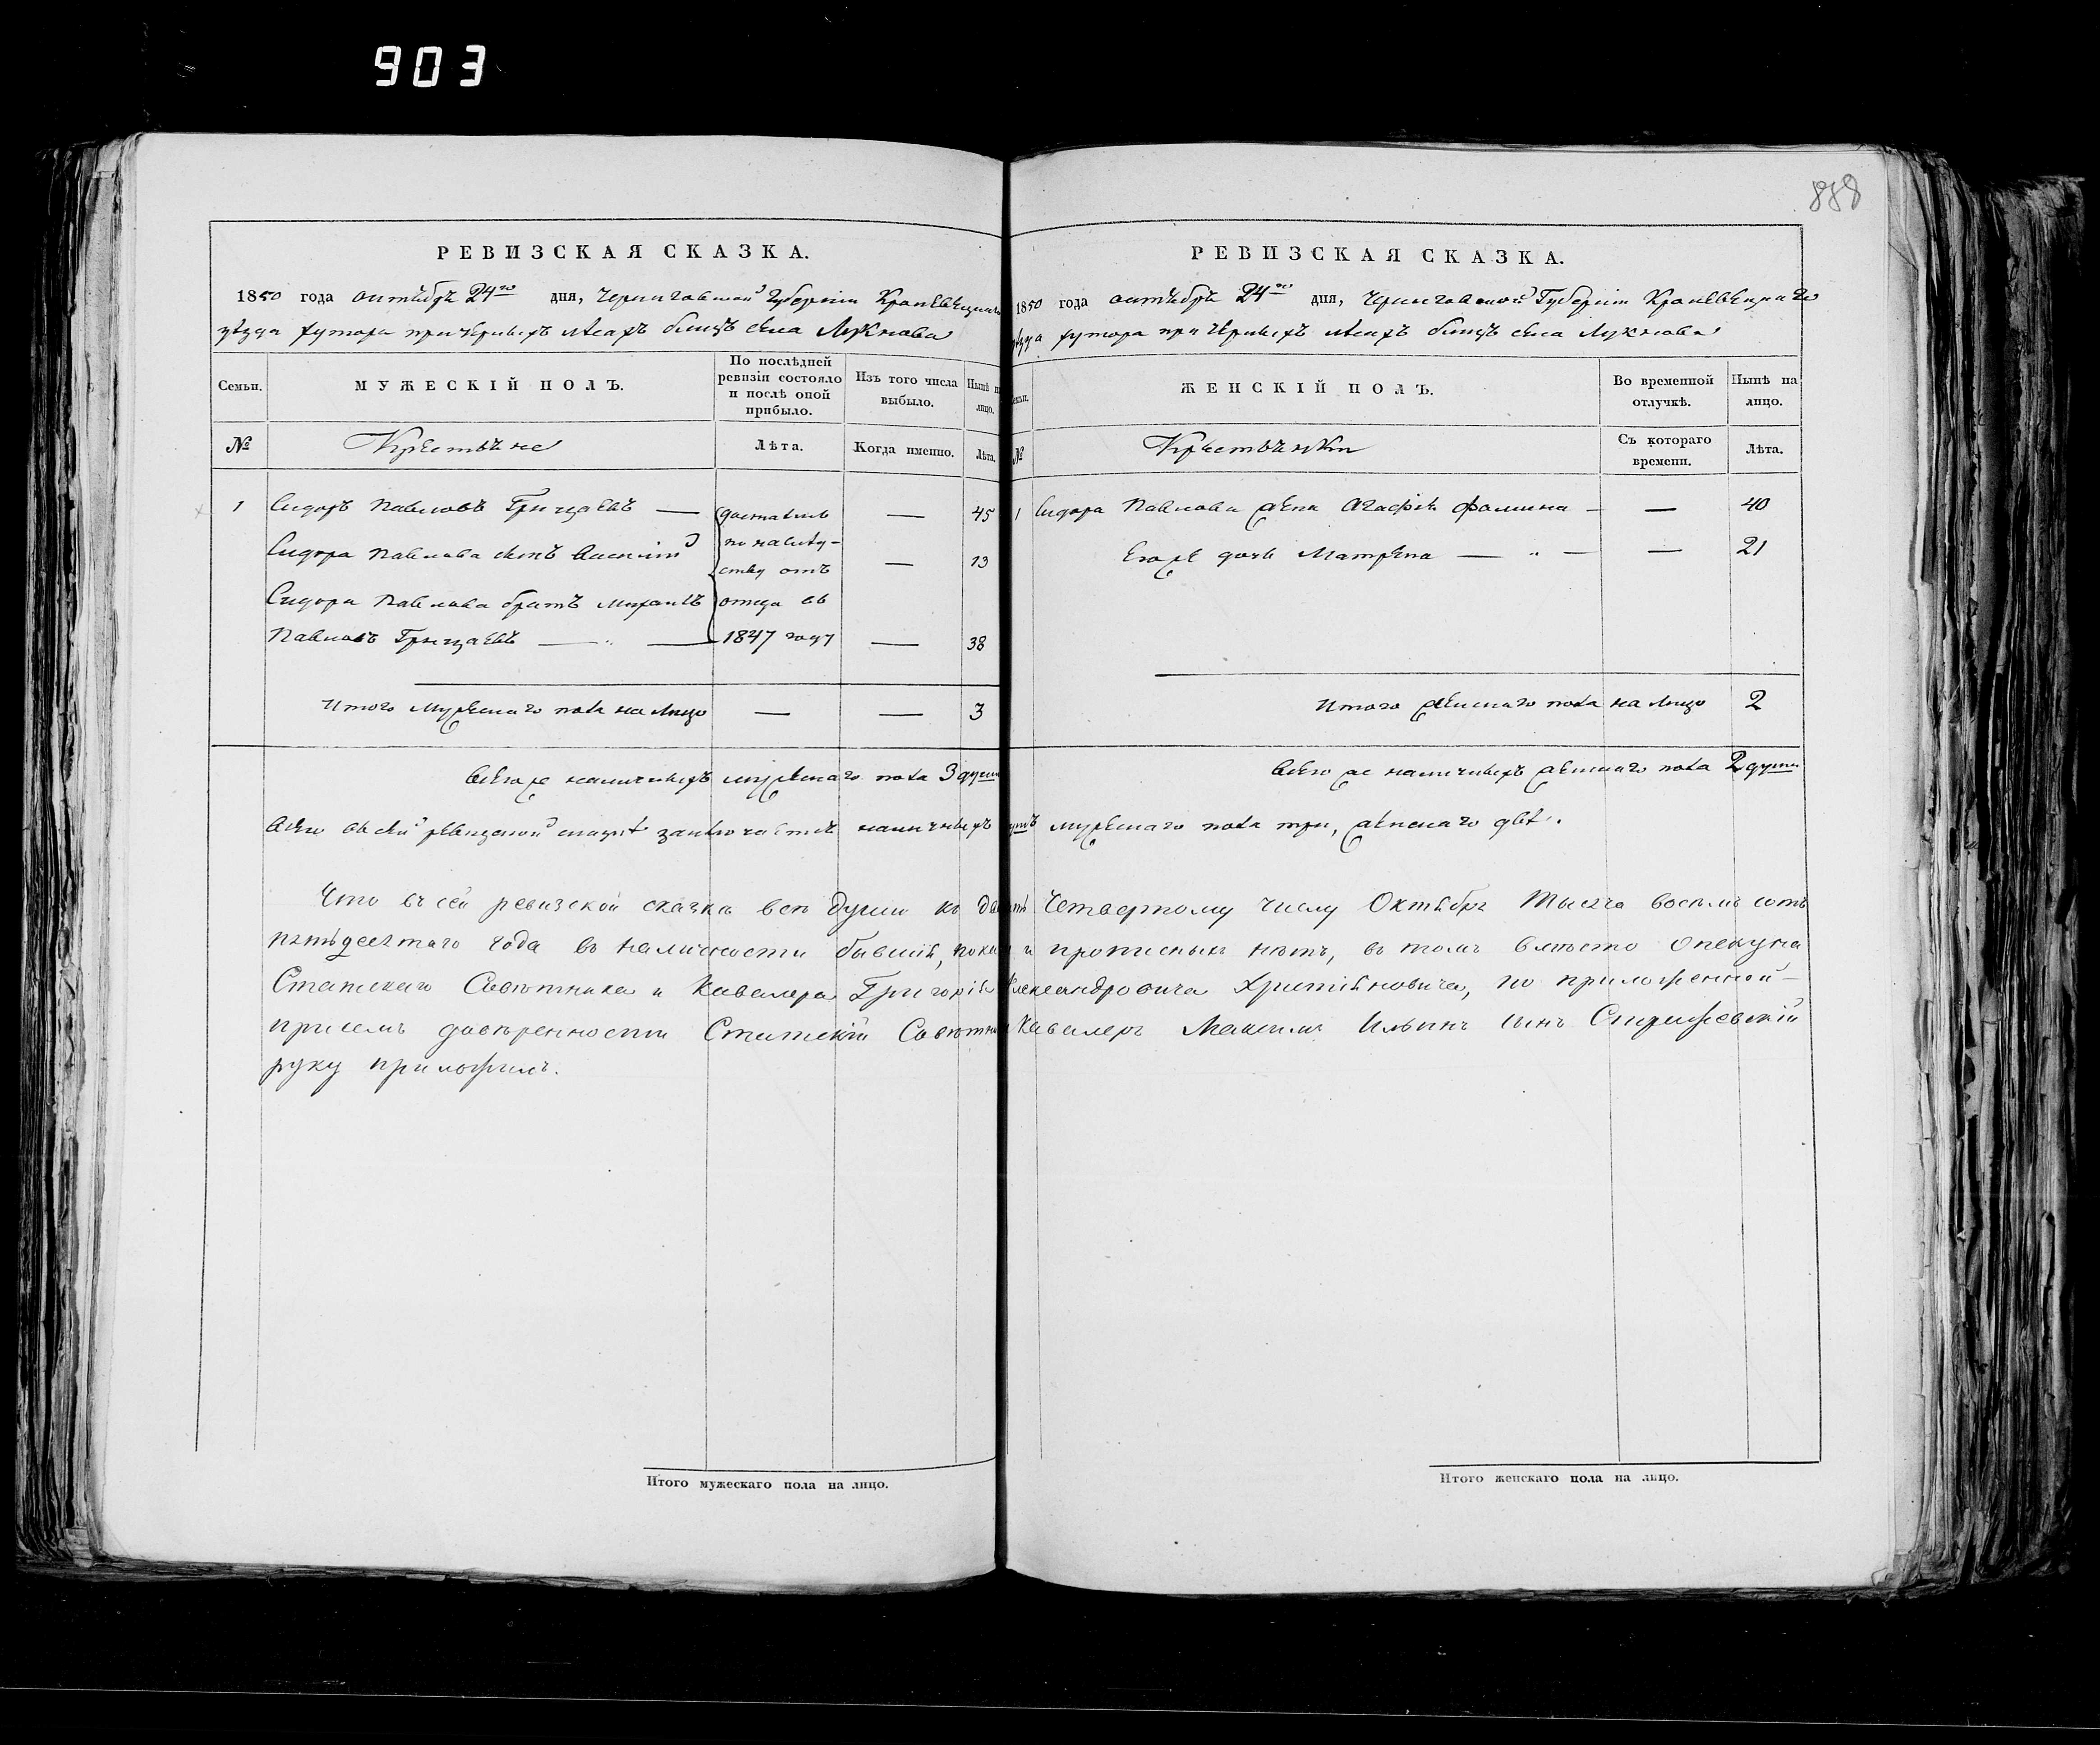 903
888
РЕВИЗСКАЯ СКАЗКА.
1850 года октября 24го дня, Черниговской Губерніи Кролевецкаго
уѣзда хутора при Черныхъ лѣсахъ близъ села Лукнова
Семьи. МУЖЕСКІЙ ПОЛЪ. По послѣдней ревизіи состояло и послѣ оной прибыло. Изъ того числа выбыло. Нынѣ на лицо.
№ Крестьяне Лѣта. Когда именно. Лѣта.
1 Сидоръ Павловъ Грищаевъ — достались — 45
Сидора Павлова сынъ Василій по наслѣд- — 13
ству отъ
Сидора Павлова братъ Михаилъ отца въ
Павловъ Грищаевъ — 1847 году — 38
Итого мужескаго пола на лицо — — 3
Всего же наличныхъ мужескаго пола 3 души
РЕВИЗСКАЯ СКАЗКА.
1850 года октября 24го дня, Черниговской Губерніи Кролевецкаго
уѣзда хутора при Черныхъ лѣсахъ близъ села Лукнова
Семьи. ЖЕНСКІЙ ПОЛЪ. Во временной отлучкѣ. Нынѣ на лицо.
№ Крестьянки Съ котораго времени. Лѣта.
1 Сидора Павлова жена Агафія Фомина — — 40
Егоже дочь Матрена — „ — — 21
Итого женскаго пола на лицо 2
Всего же наличныхъ женскаго пола 2 души
Всего въ сей ревизской сказкѣ заключается наличныхъ душъ мужескаго пола три, женскаго двѣ.
Что въ сей ревизской сказкѣ всѣ души къ двадцать Четвертому числу Октября Тысяча восемь сотъ
пятьдесятаго года въ наличности бывшія, показаны и прописныхъ нѣтъ, въ томъ вмѣсто опекуна
Статскаго Совѣтника и Кавалера Григорія Александровича Христіяновича, по приложенной
при семъ довѣренности Статскій Совѣтникъ и Кавалеръ Максимъ Ильинъ сынъ
руку приложилъ.
Итого мужескаго пола на лицо.
Итого женскаго пола на лицо.